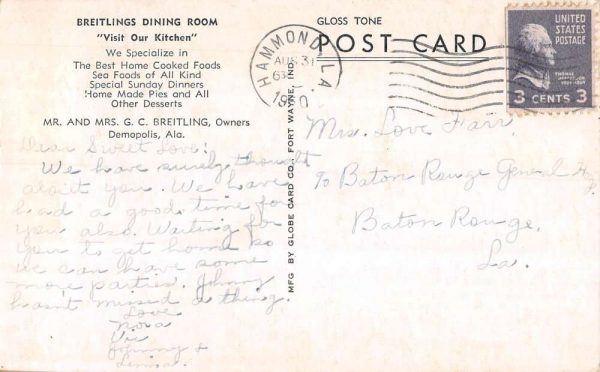 BREITLINGS DINING ROOM
"Visit Our Kitchen"
We Specialize in
The Best Home Cooked Foods
Sea Foods of All Kind
Special Sunday Dinners
Home Made Pies and All
Other Desserts
MR. AND MRS. G. C. BREITLING, Owners
Demopolis, Ala.
Dear Sweet Love:
We have surely thought
about you. We have
had a good time for
you also. Waiting for
you to get home so
we can have some
more parties. Johnny
hasn't missed a thing.
Love
Nova
Vic
Johnny &
MFG BY GLOBE CARD CO., FORT WAYNE, IND.
GLOSS TONE
POST CARD
HAMMOND, LA
AUG 31
1950
UNITED
STATES
POSTAGE
THOMAS JEFFERSON
3 CENTS 3
Mrs. Love Farr,
% Baton Rouge General
Baton Rouge,
La.